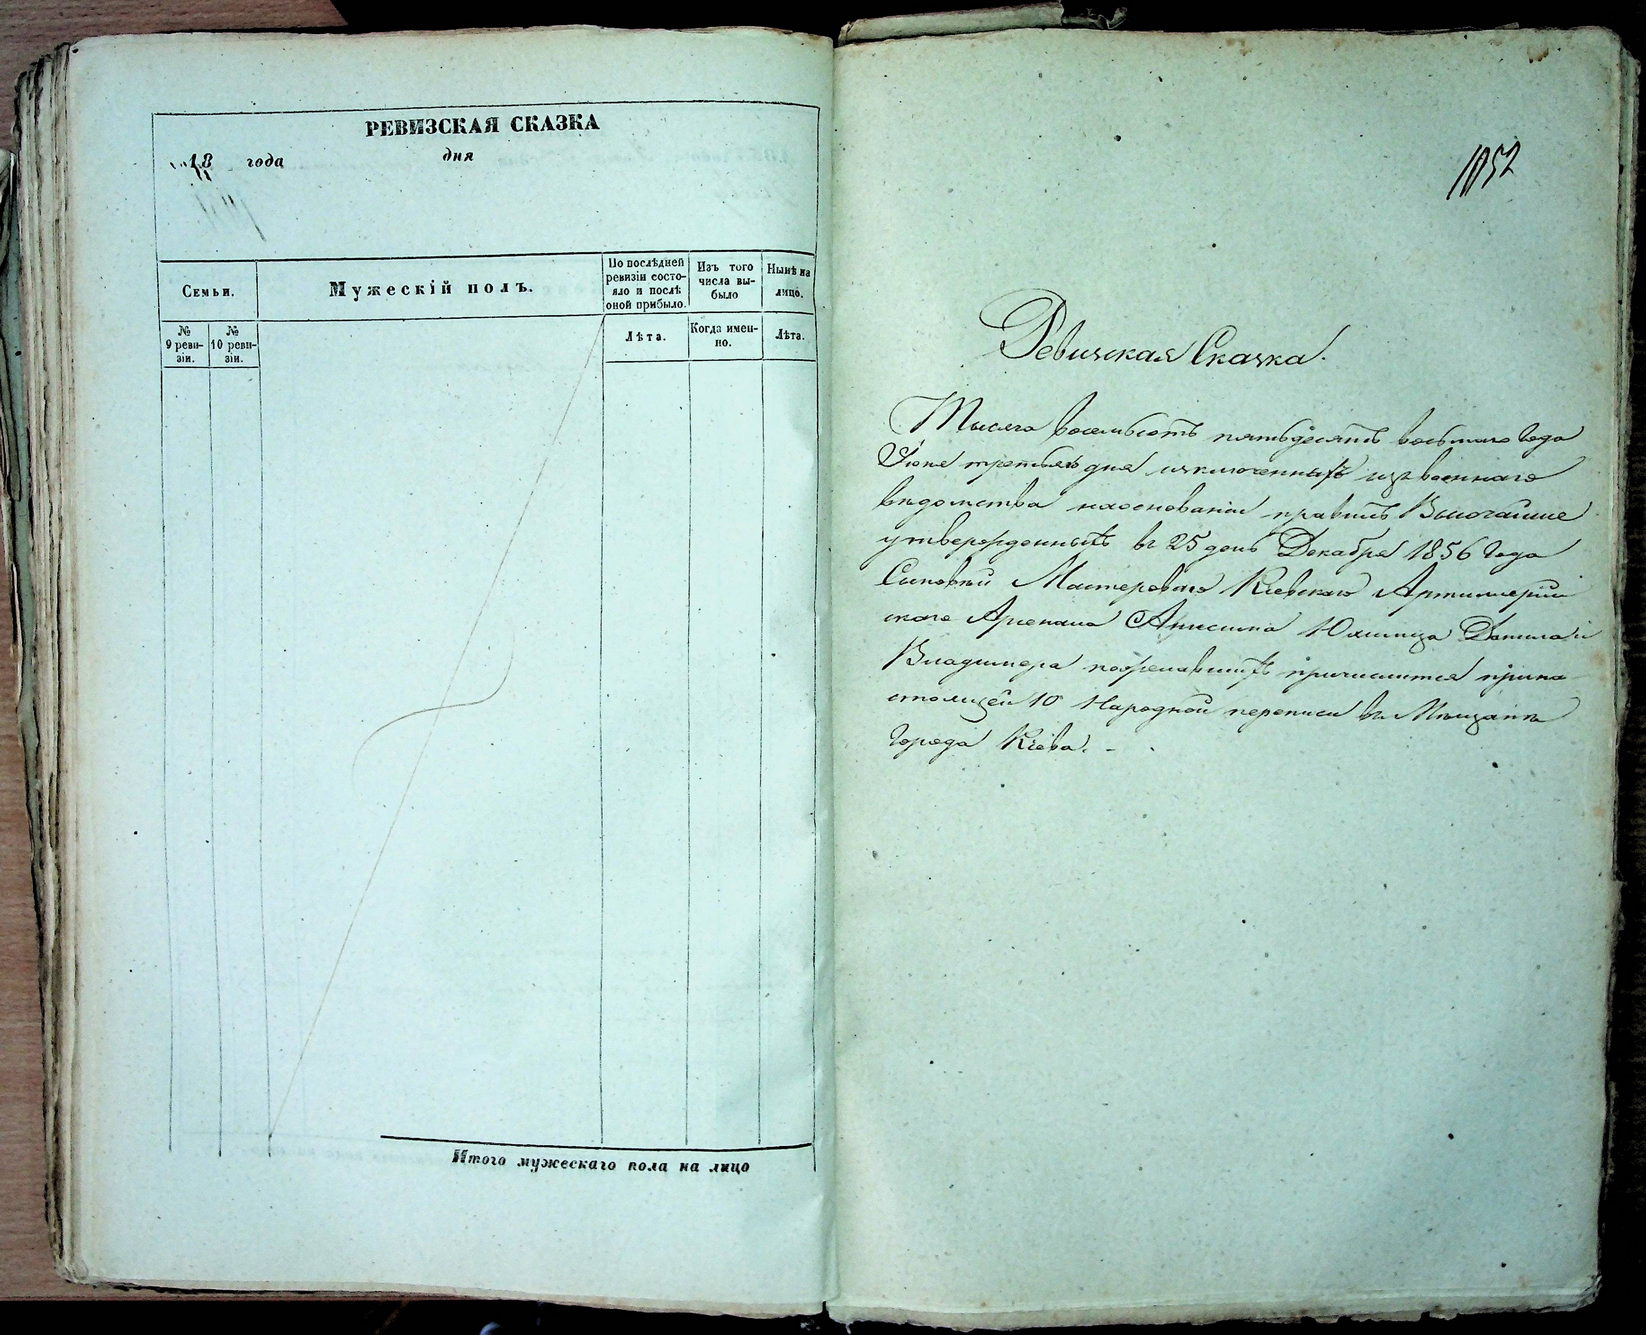 РЕВИЗСКАЯ СКАЗКА
18 года дня
Семьи.
Мужескій полъ.
По послѣдней ревизіи состояло и послѣ оной прибыло.
Изъ того числа выбыло
Нынѣ на лицо.
№ 9 ревизіи.
№ 10 ревизіи.
Лѣта.
Когда именно.
Лѣта.
Итого мужескаго пола на лицо
1052
Ревизская Сказка.
Тысяча восемьсотъ пятьдесятъ восьмаго Года
Іюня третьяго дня изключенныхъ изъ военнаго
вѣдомства наоснованіи правилъ Высочайше
утвержденныхъ въ 25 день Декабря 1856 Года
Сыновей Мастероваго Кіевскаго Артиллерій
скаго Арсенала Анисима Юхимца Данила и
Владимера пожелавшихъ причислится прина
стоящей 10 Народной переписи въ Мѣщане
Города Кіева.